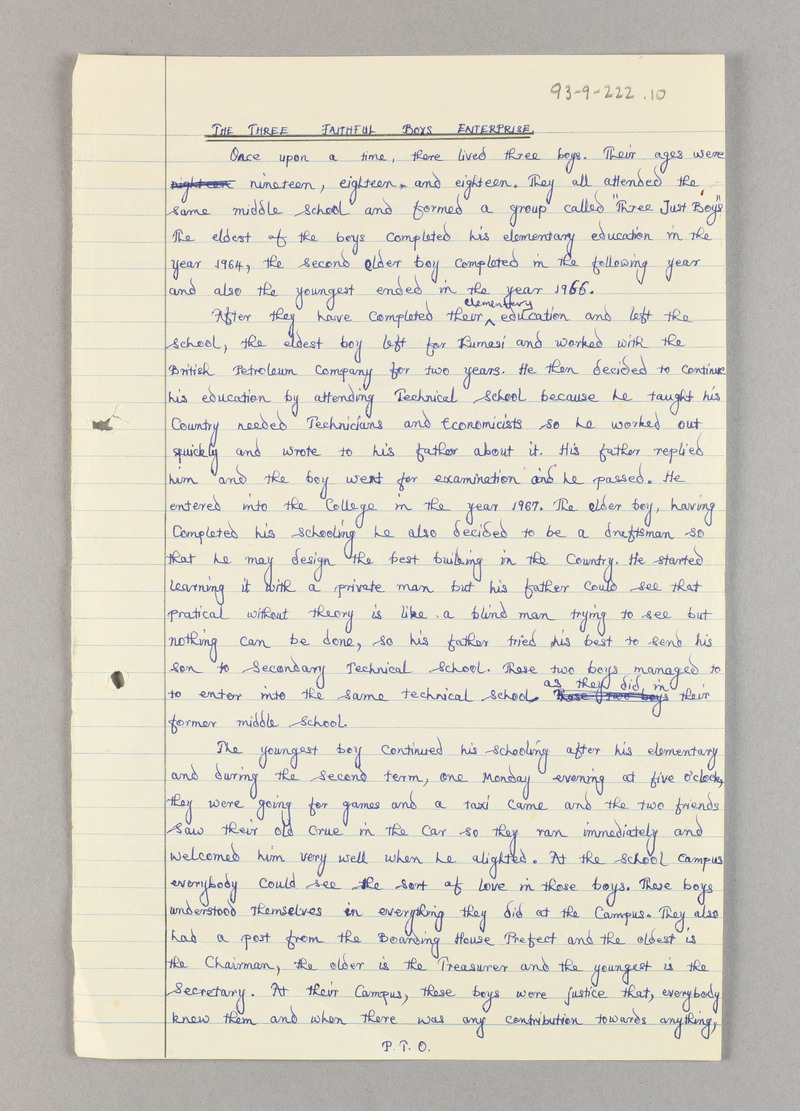 93-9-222.10
THE THREE FAITHFUL BOYS ENTERPRISE.
Once upon a time, there lived three boys. Their ages were
nineteen, eighteen, and eighteen. They all attended the
same middle school and formed a group called "Three Just Boys".
The eldest of the boys completed his elementary education in the
year 1964, the second older boy completed in the following year
and also the youngest ended in the year 1966.
After they have completed their elementary education and left the
school, the eldest boy left for Kumasi and worked with the
British Petroleum Company for two years. He then decided to continue
his education by attending Technical School because he taught his
Country needed Technicians and Economicists so he worked out
quickly and wrote to his father about it. His father replied
him and the boy went for examination and he passed. He
entered into the College in the year 1967. The older boy, having
Completed his schooling he also decided to be a draftsman so
that he may design the best building in the Country. He started
learning it with a private man but his father could see that
pratical without theory is like a blind man trying to see but
nothing can be done, so his father tried his best to send his
son to Secondary Technical School. These two boys managed to
to enter into the same technical school as they did in their
former middle school.
The youngest boy continued his schooling after his elementary
and during the second term, one Monday evening at five o'clock,
they were going for games and a taxi came and the two friends
saw their old crue in the car so they ran immediately and
welcomed him very well when he alighted. At the school campus
everybody could see the sort of love in those boys. These boys
understood themselves in everything they did at the Campus. They also
had a post from the Boarding House Prefect and the oldest is
the Chairman, the older is the Treasurer and the youngest is the
Secretary. At their Campus, these boys were justice that, everybody
knew them and when there was any contribution towards anything,
P.T.O.